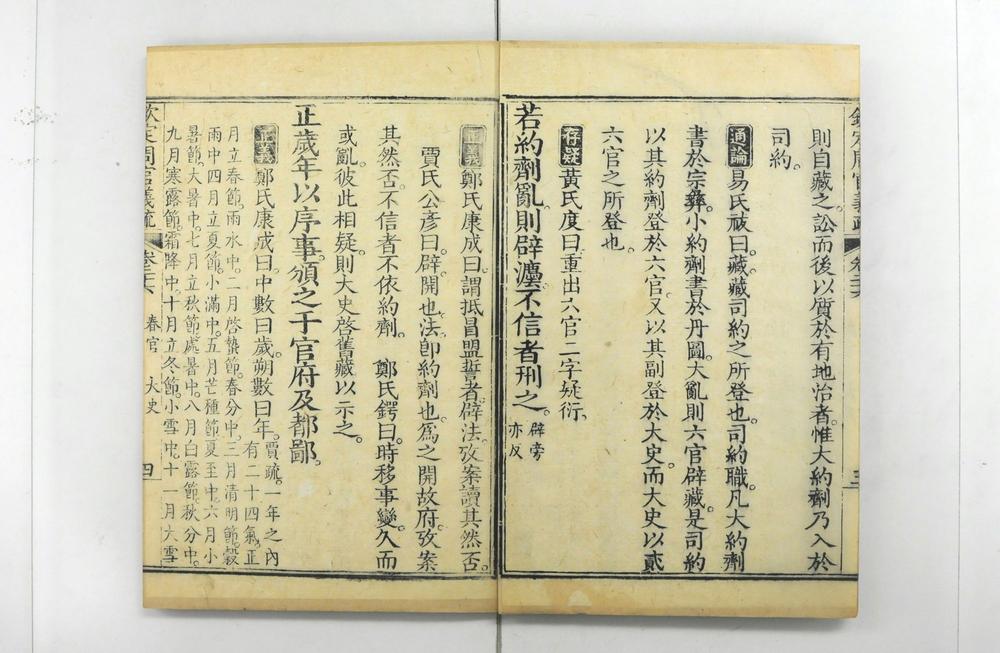 欽定周官義疏 卷二十六 三
則自藏之訟而後以質於有地治者惟大約劑乃入於
司約。
通論 易氏祓曰藏藏司約之所登也。司約職凡大約劑
書於宗彝。小約劑書於丹圖。大亂則六官辟藏。是司約
以其約劑登於六官。又以其副登於大史。而大史以貳
六官之所登也。
存疑 黃氏度曰重出六官二字疑衍。
若約劑亂。則辟灋。不信者刑之。辟旁
亦反
正義 鄭氏康成曰。謂抵冒盟誓者。辟法。攷案讀其然否。
賈氏公彥曰。辟。開也。法。卽約劑也。爲之開故府。攷案
其然否。不信者不依約劑。 鄭氏鍔曰。時移事變。久而
或亂。彼此相疑。則大史啓舊藏以示之。
正歲年以序事。頒之于官府及都鄙。
正義 鄭氏康成曰。中數曰歲。朔數曰年。賈疏。一年之內
有二十四氣。正
月立春節。雨水中。二月啓蟄節。春分中。三月清明節。穀
雨中。四月立夏節。小滿中。五月芒種節。夏至中。六月小
暑節。大暑中。七月立秋節。處暑中。八月白露節。秋分中。
九月寒露節。霜降中。十月立冬節。小雪中。十一月大雪
欽定周官義疏 卷二十六 春官 大史 四